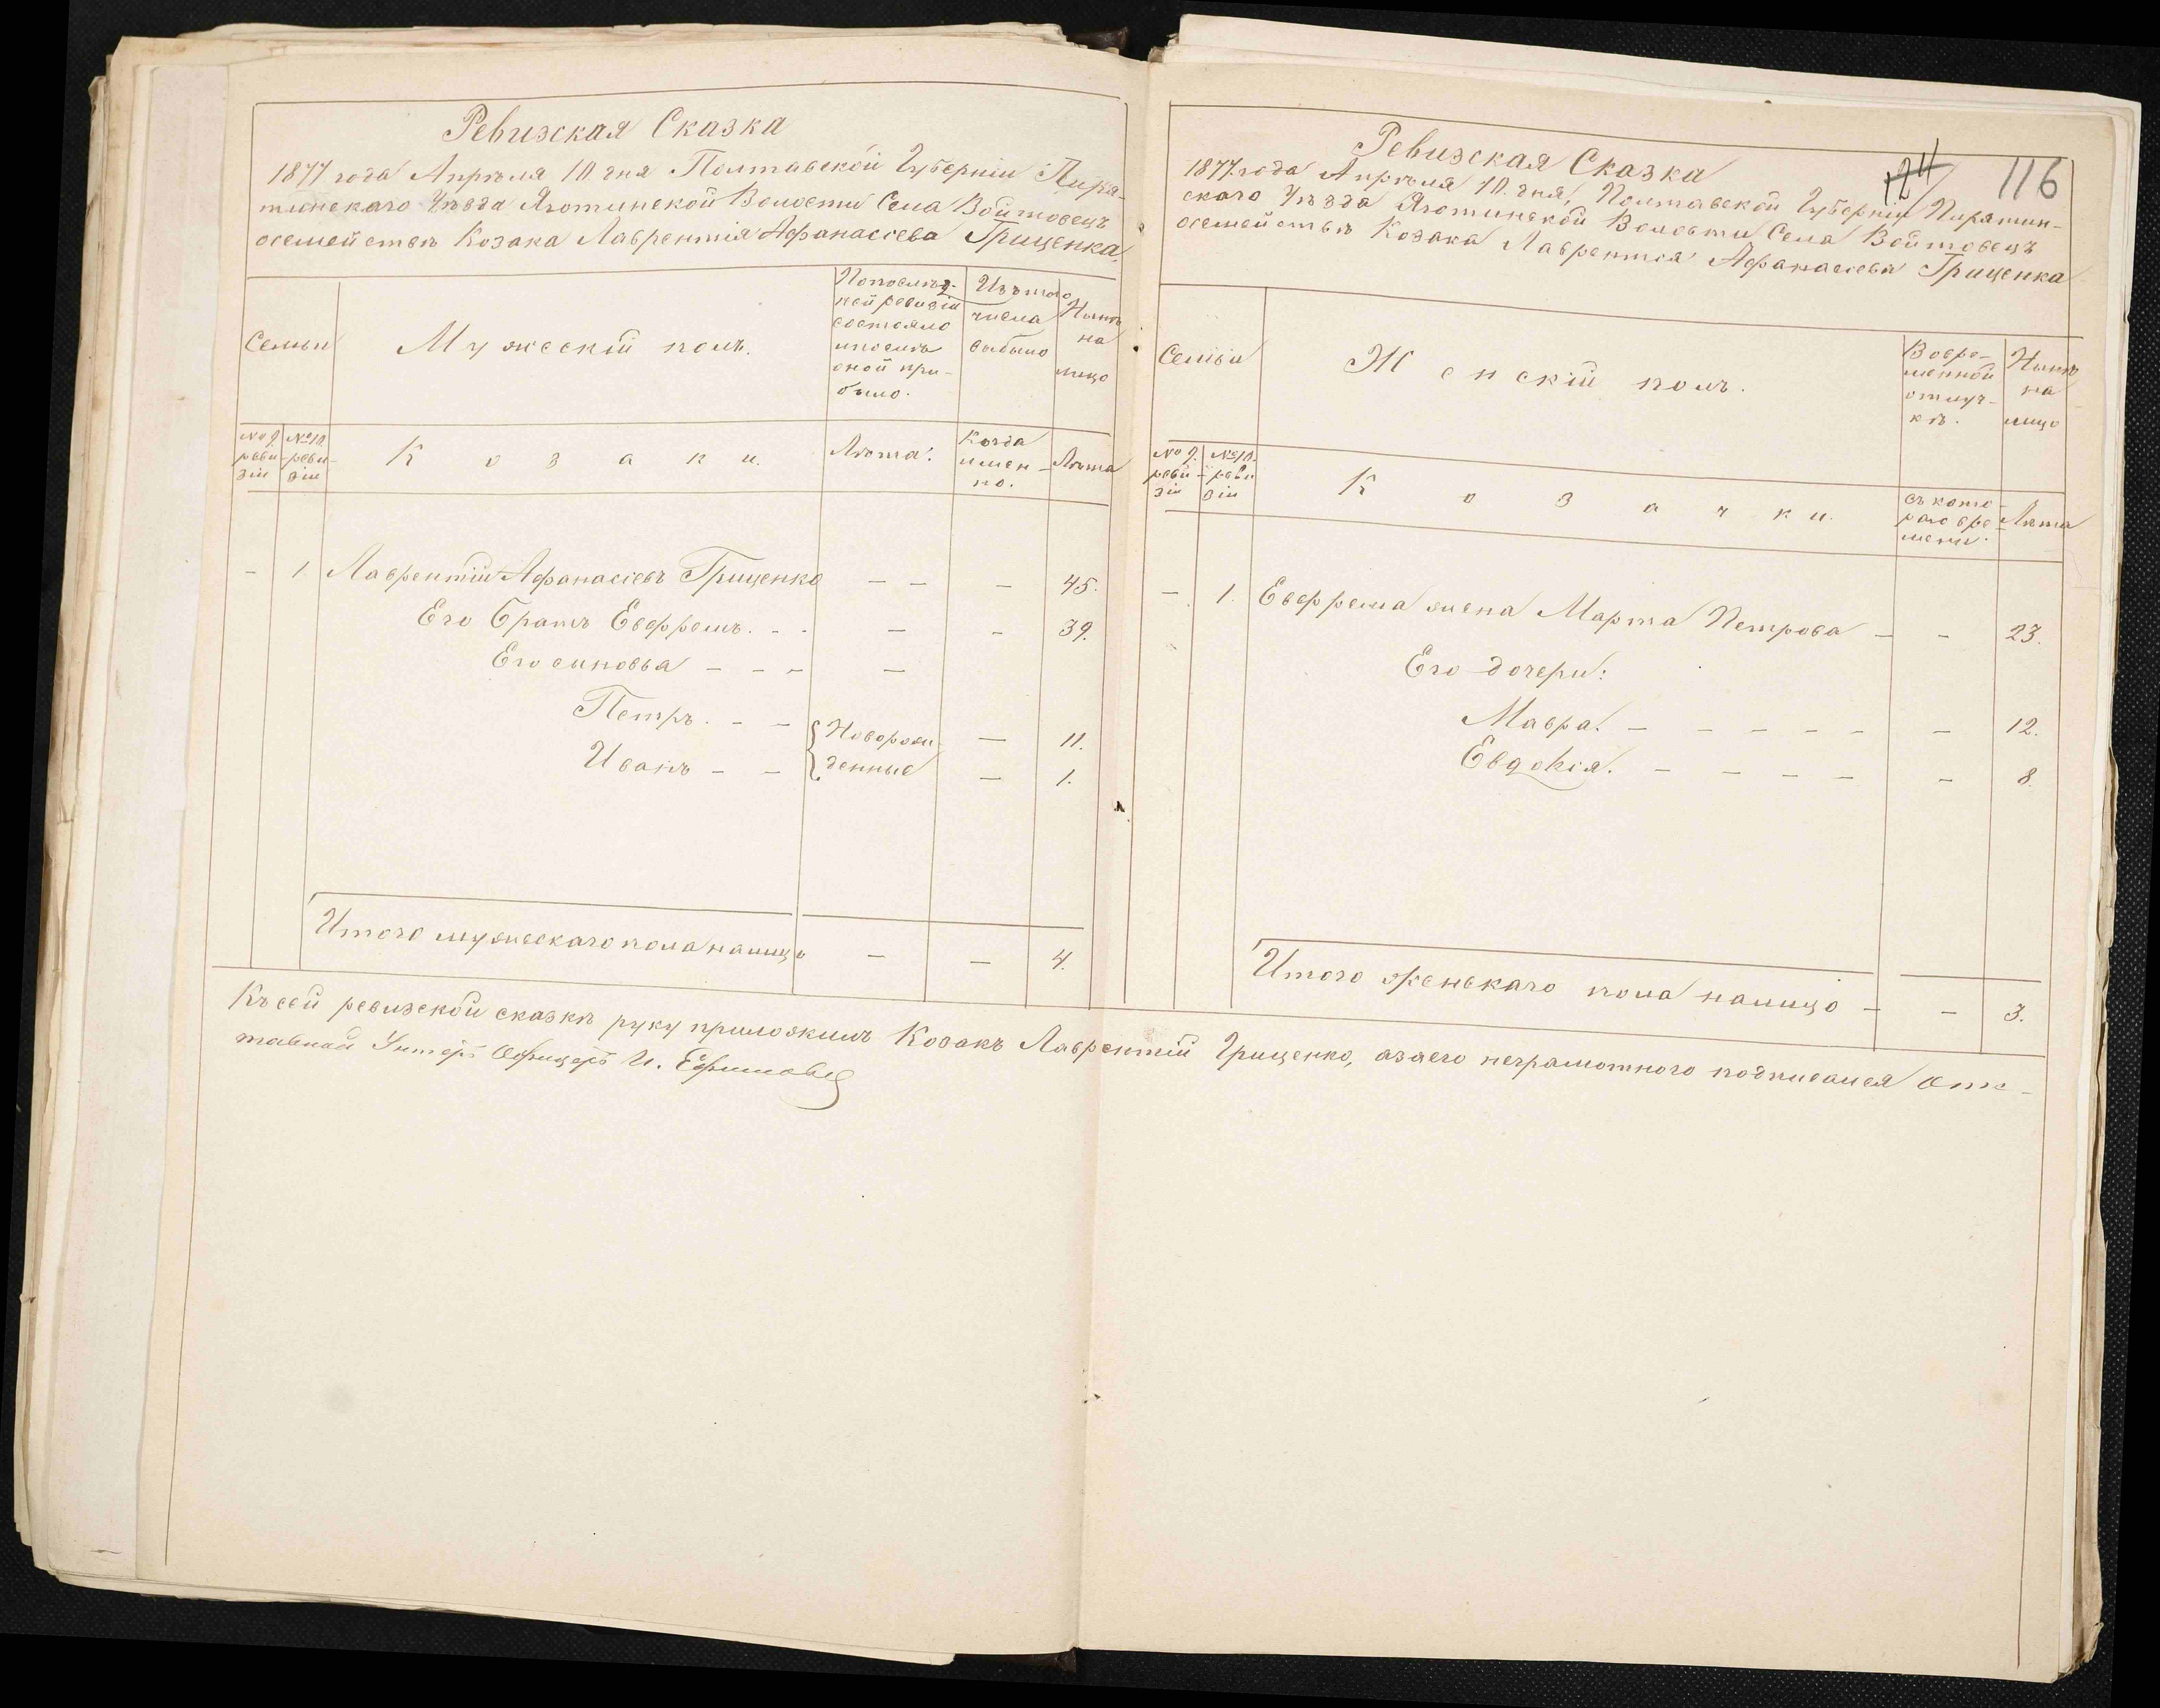 Ревизская Сказка
1877 года Апрѣля 10 дня Полтавской Губерніи Пиря-
тинскаго Уѣзда Яготинской Волости Села Войтовецъ
осемействѣ Козака Лаврентія Афанасіева Грищенка.
Семьи
Мужескій полъ.
Попослѣд-
ней ревизіи
состояло
ипослѣ
оной при-
было.
Изътого
числа
выбыло
Нынѣ
на
лицо
№ 9.
реви-
зіи
№ 10.
реви-
зіи
Козаки.
Лѣта.
Когда
имен-
но.
Лѣта
- 1 Лаврентій Афанасіевъ Грищенко - - - 45.
Его братъ Евфремъ. - - - - 39.
Его сыновья - - - -
Петръ. - - { Новорож- - 11.
Иванъ - - { денные - 1.
Итого мужескаго пола налицо - - 4.
Ревизская Сказка
124 116
1877. года Апрѣля 10. дня, Полтавской Губерніи Пирятин-
скаго Уѣзда Яготинской Волости Села Войтовецъ
осемействѣ Козака Лаврентія Афанасіева Грищенка
Семьи
Женскій полъ.
Вовре-
менной
отлуч-
кѣ.
Нынѣ
на
лицо
№ 9.
реви-
зіи
№ 10.
реви-
зіи
Козачки.
съ кото-
раго вре-
мени.
Лѣта
- 1. Евфрема жена Марта Петрова - - 23.
Его дочери:
Мавра. - - - - - - 12.
Евдокія. - - - - - 8.
Итого женскаго пола налицо - - 3.
Къ сей ревизской сказкѣ руку приложилъ Козакъ Лаврентій Грищенко, азаего неграмотного подписался Отс-
тавной Унтеръ Офицеръ И. Ефимовъ